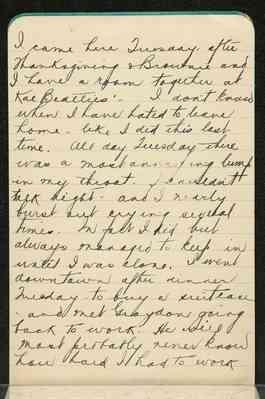 I came here Tuesday after
Thanksgiving & Brownie and
I have a room together at
Kae Beatties'. I don't know
when I have hated to leave
home like I did this last
time. All day Tuesday there
was a most annoying lump
in my throat. I couldn't
talk right - and I nearly
burst out crying several
times. In fact I did but
always managed to keep in
until I was alone. I went
downtown after dinner
Tuesday to buy a suitcase
- and met Graydon going
back to work. He will
most probably never know
how hard I had to work